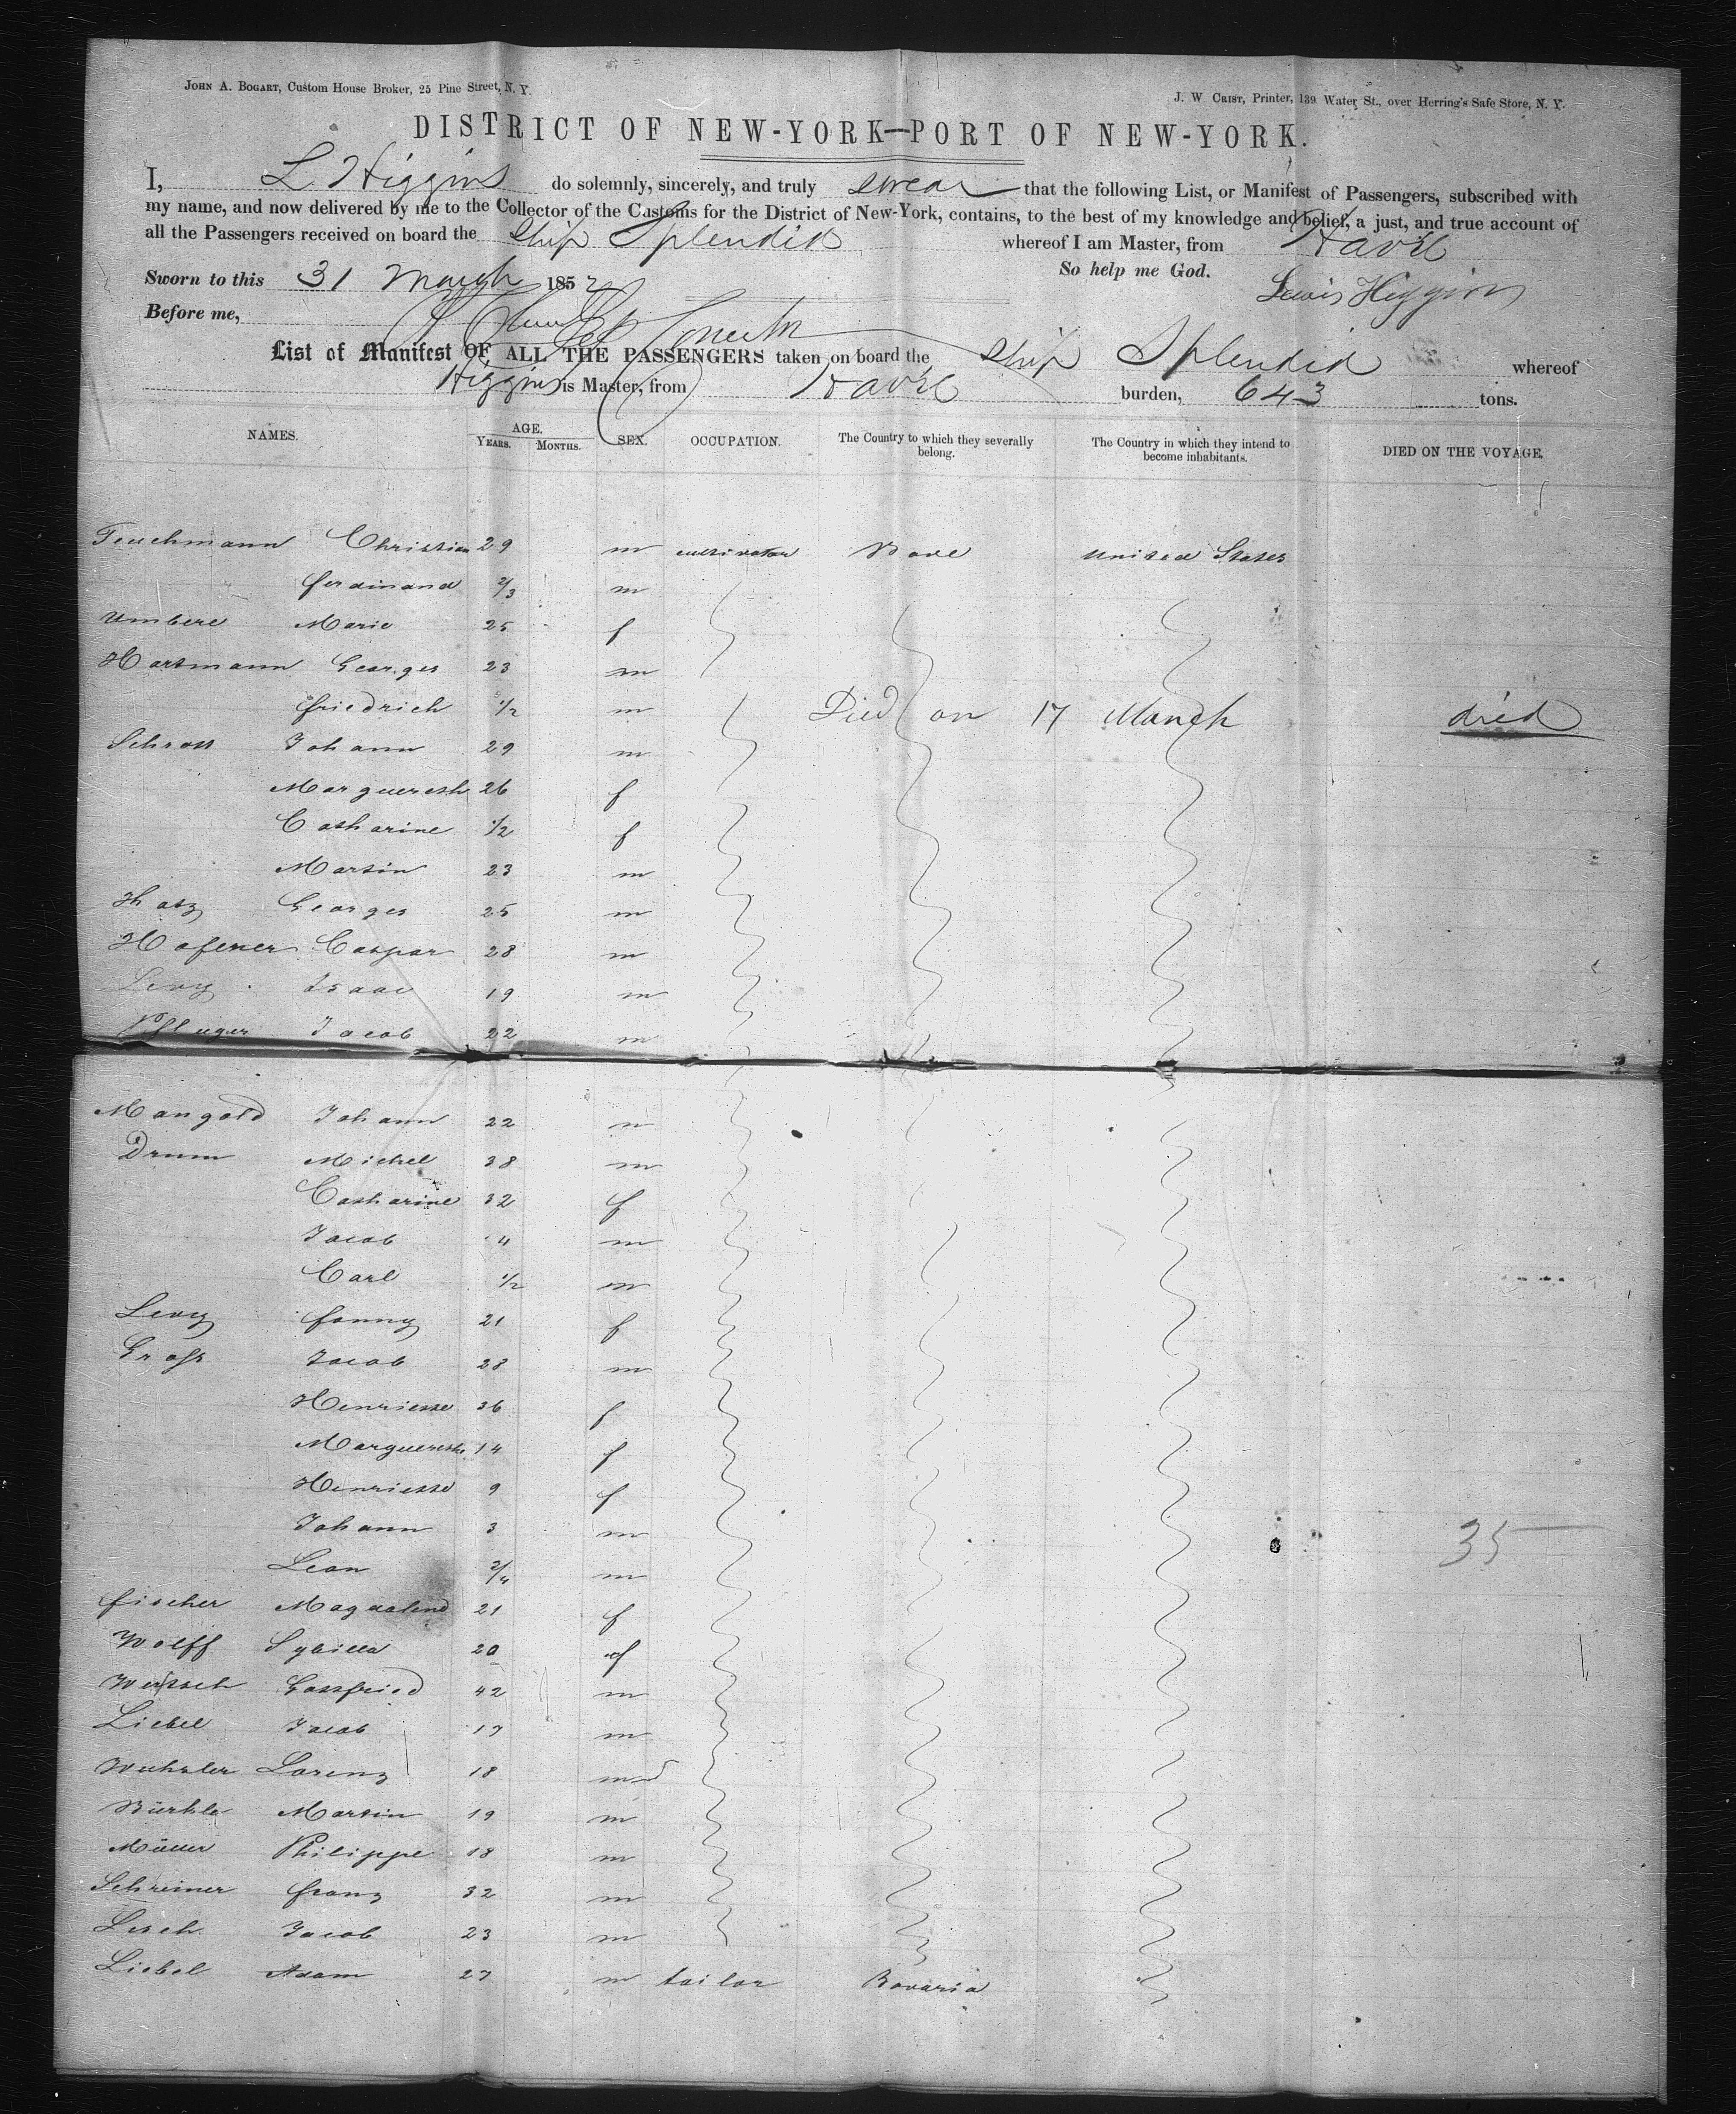 JOHN A. BOGART, Custom House Broker, 25 Pine Street, N. Y.
J. W CRIST, Printer, 139 Water St., over Herring's Safe Store, N. Y.
DISTRICT OF NEW-YORK—PORT OF NEW-YORK.
I, L Higgins do solemnly, sincerely, and truly swear that the following List, or Manifest of Passengers, subscribed with
my name, and now delivered by me to the Collector of the Customs for the District of New-York, contains, to the best of my knowledge and belief, a just, and true account of
all the Passengers received on board the Ship Splendid whereof I am Master, from Havre
Sworn to this 31 March 1852 So help me God. Lewis Higgins
Before me,
List of Manifest OF ALL THE PASSENGERS taken on board the Ship Splendid whereof
Higgins is Master, from Havre burden, 643 tons.
NAMES. AGE. YEARS. MONTHS. SEX. OCCUPATION. The Country to which they severally belong. The Country in which they intend to become inhabitants. DIED ON THE VOYAGE.
Teuchmann Christian 29 m cultivator United States
ferdinand 2/3 m
Marie 25 f
Hartmann Georges 23 m
friedrich 1/2 m Died on 17 March died
Schross Johann 29 m
Marguereth 26 f
Catharine 1/2 f
Martin 23 m
Georges 25 m
Hafener Caspar 28 m
Levy Isaac 19 m
Pfluger Jacob 22 m
Mangold Johann 22 m
Drum Michel 38 m
Catharine 32 f
Jacob 4 m
Carl 1/2 m
Levy fanny 21 f
Groß Jacob 28 m
Henriette 36 f
Marguerethe 14 f
Henriette 9 f
Johann 3 m
35
Leon 3/4 m
fischer Magdalena 21 f
Wolff Sybilla 20 f
Gottfried 42 m
Liebel Jacob 17 m
Lorenz 18 m
Bürkle Martin 19 m
Müller Philippe 18 m
Schreiner franz 32 m
Lesch Jacob 23 m
Liebel Adam 27 m tailor Bavaria